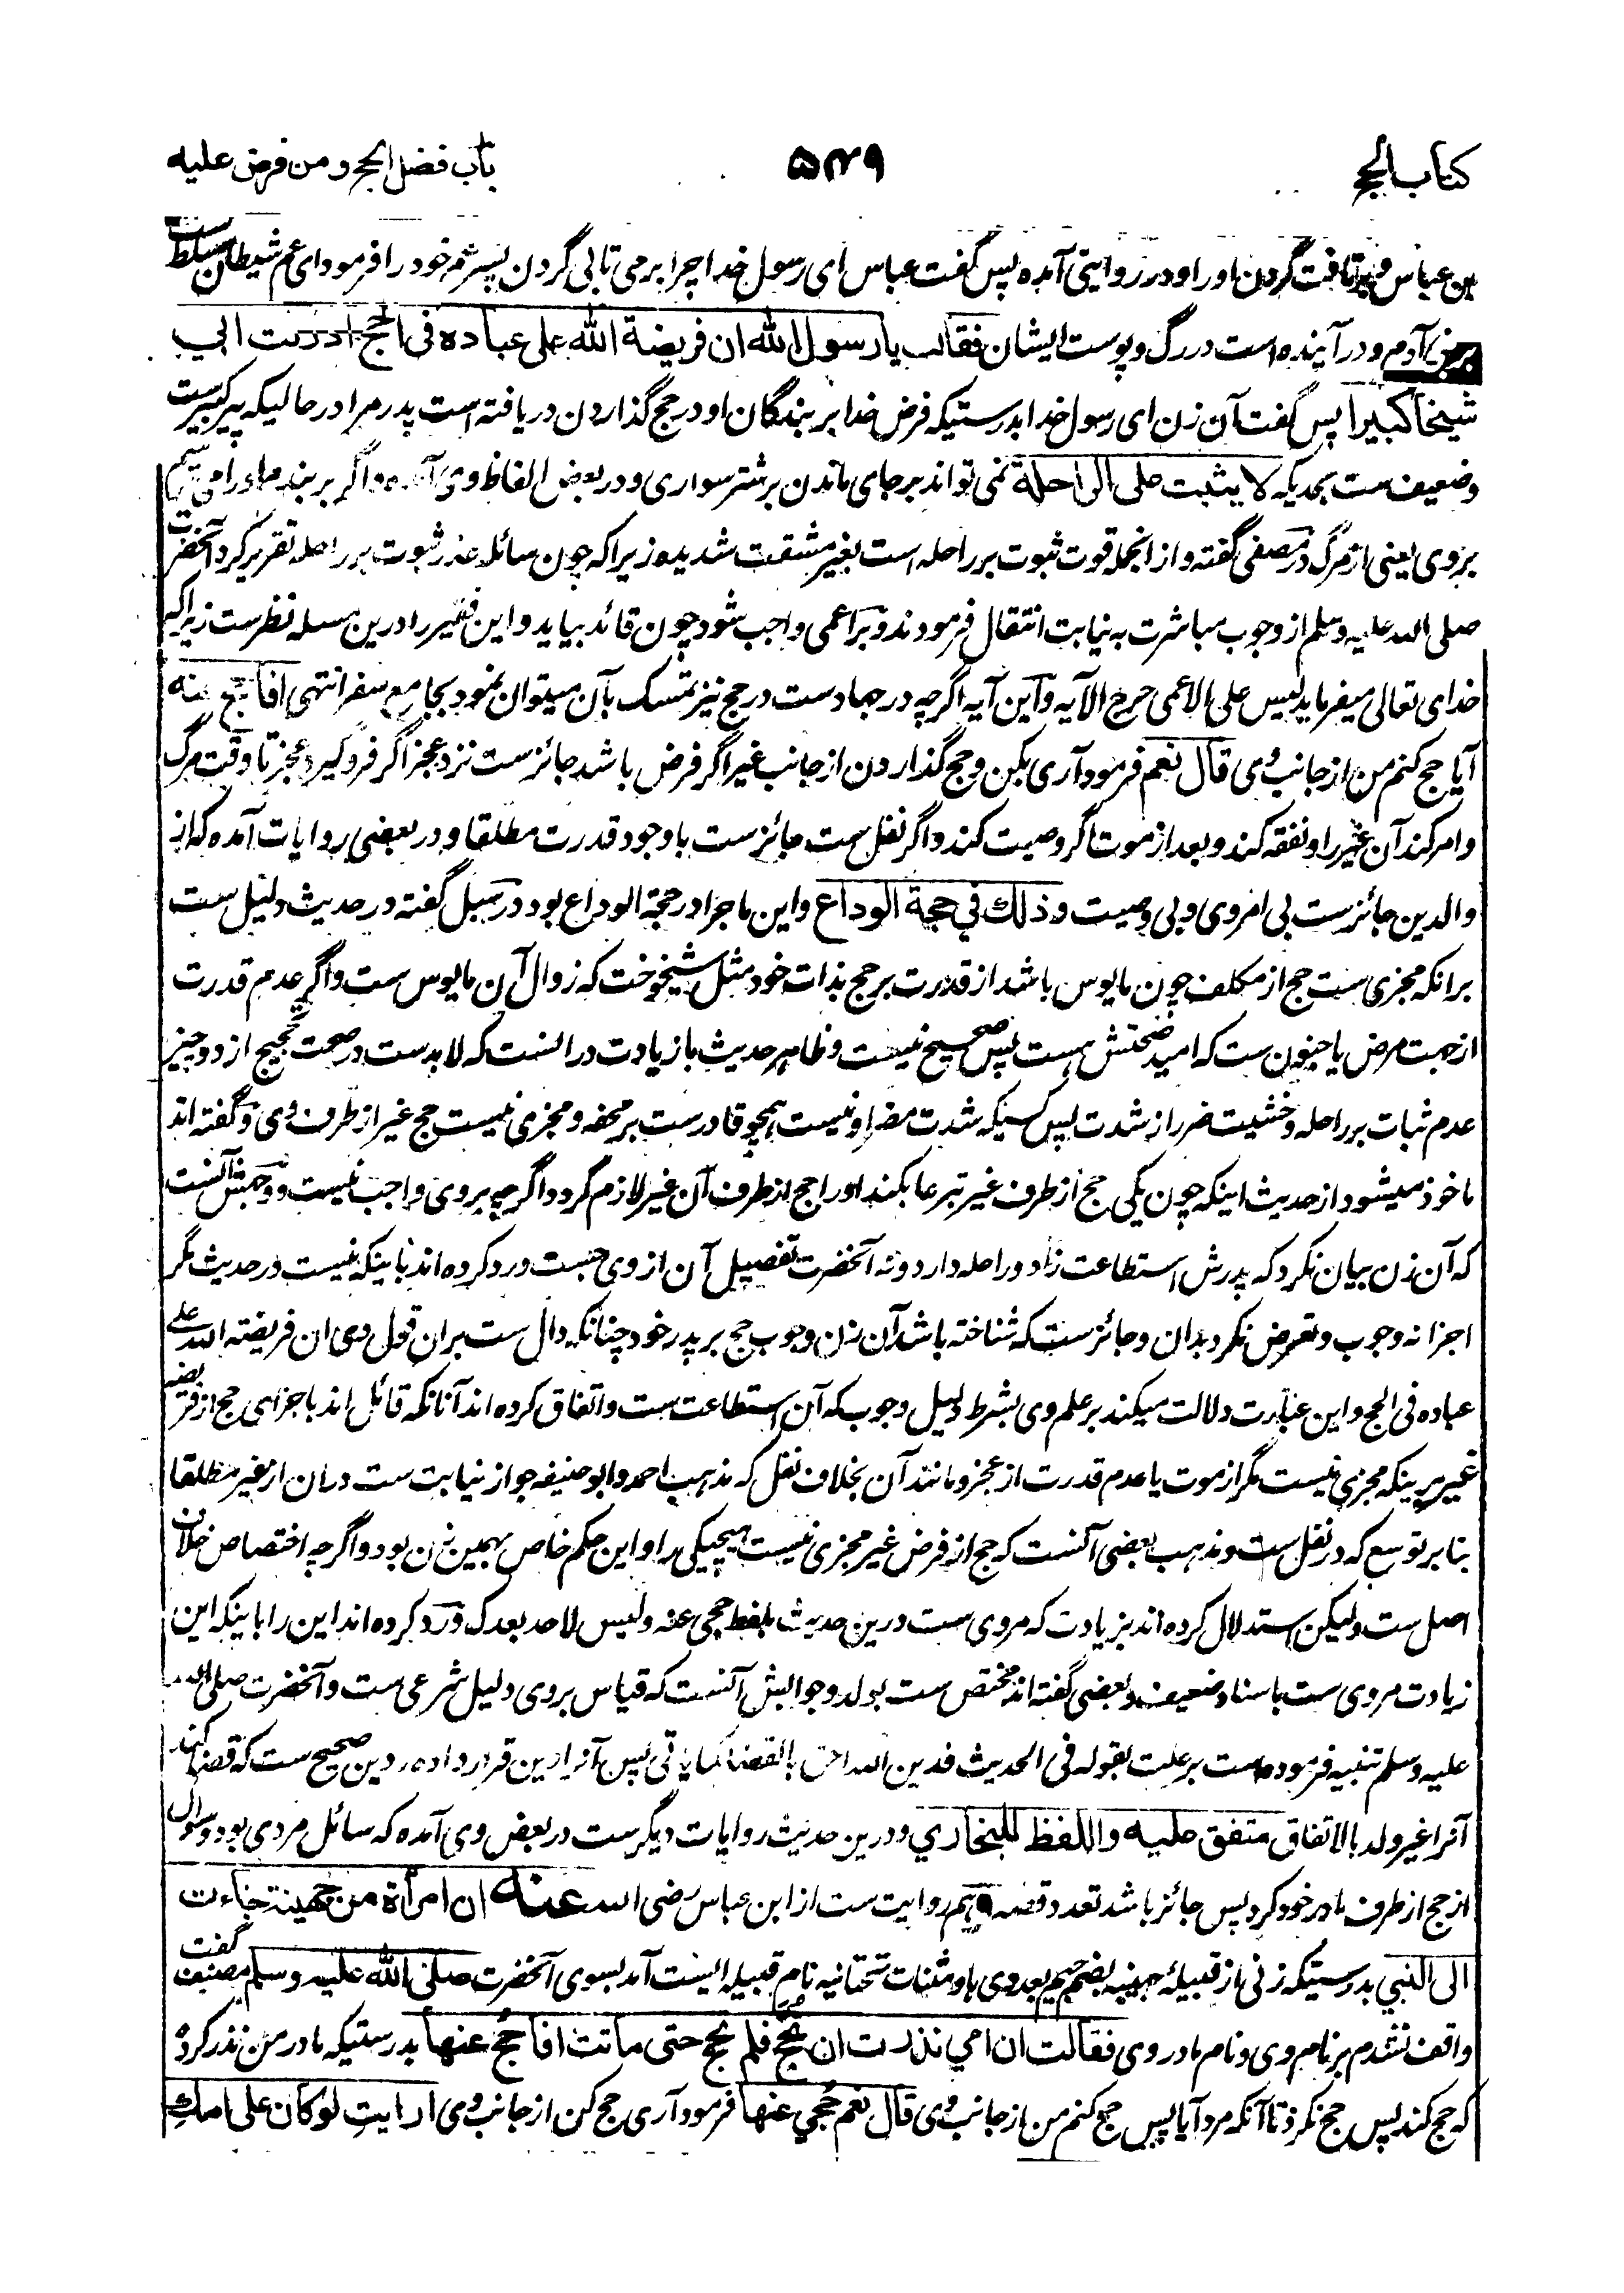 کتاب الحج
۵۴۹
باب فضل الحج و من فرض علیه
بن عباس و برتافت گردن او را و در روایتی آمده پس گفت عباس ای رسول خدا چرا برمی تابی گردن پسر عم خود را فرمود ای عم شیطان مسلط ست
بر بنی آدم و در آینده است در رگ و پوست ایشان فقالت یا رسول الله ان فریضة الله علی عباده فی الحج ادرکت ابی
شیخا کبیرا پس گفت آن زن ای رسول خدا بدرستیکه فرض خدا بر بندگان او در حج گذاردن دریافته است پدر مرا در حالیکه پیر کبیرست
وضعیف ست بحدیکه لا یثبت علی الراحلة نمی تواند برجای ماندن بر شتر سواری و در بعض الفاظ وی آمده و اگر بر بندم او را می ترسم
بر وی یعنی از مرگ در مصفی گفته و از انجمله قوت ثبوت بر راحله است بغیر مشقت شدیده زیرا که چون سائله عذر ثبوت بر راحله تقریر کرد آنحضرت
صلی الله علیه وسلم از وجوب مباشرت به نیابت انتقال فرمودند و بر اعمی واجب شود چون قائد بیابد و این فقیر را درین مسله نظرست زیرا که
خدای تعالی میفرماید لیس علی الاعمی حرج الآیه و این آیه اگرچه در جهادست در حج نیز تمسک بآن میتوان نمود بجامع سفر انتهی افاحج عنه
آیا حج کنم من از جانب وی قال نعم فرمود آری بکن و حج گذاردن از جانب غیر اگر فرض باشد جائزست نزد عجز اگر فروگیرد عجز تا وقت مرگ
و امر کند آن غیر را و نفقه کند و بعد از موت اگر وصیت کند و اگر نفل ست جائزست با وجود قدرت مطلقا و در بعضی روایات آمده که از
والدین جائزست بی امر وی و بی وصیت وذلك في حجة الوداع و این ماجرا در حجة الوداع بود در سبل گفته در حدیث دلیل ست
برانکه مجزی ست حج از مکلف چون مایوس باشد از قدرت بر حج بذات خود مثل شیخوخت که زوال آن مایوس ست و اگر عدم قدرت
از جهت مرض یا جنون ست که امید صحتش هست پس صحیح نیست و ظاهر حدیث با زیادت درانست که لابدست در صحت تحجیج از دو چیز
عدم ثبات بر راحله و خشیت ضرر از شدت پس کسیکه شدت مضر او نیست همچو قادرست بر محفه و مجزی نیست حج غیر از طرف وی و گفته اند
ماخوذ میشود از حدیث اینکه چون یکی حج از طرف غیر تبرعا بکند او را حج از طرف آن غیر لازم گردد اگرچه بر وی واجب نیست و وجهش آنست
که آن زن بیان نکرد که پدرش استطاعت زاد و راحله دارد و نه آنحضرت تفصیل آن از وی جست و رد کرده اند باینکه نیست در حدیث مگر
اجزا نه وجوب و تعرض نکرد بدان و جائزست که شناخته باشد آن زن وجوب حج بر پدر خود چنانکه دال ست بران قول وی ان فریضة الله علی
عباده فی الحج و این عبارت دلالت میکند بر علم وی بشرط دلیل وجوب که آن استطاعت ست و اتفاق کرده اند آنانکه قائل اند باجزای حج از فریضه
غیر برینکه مجزی نیست مگر از موت یا عدم قدرت از عجز و مانند آن بخلاف نفل که مذهب احمد و ابوحنیفه جواز نیابت ست دران از غیر مطلقا
بنا بر توسع که در نفل ست و مذهب بعضی آنست که حج از فرض غیر مجزی نیست هیچیکی را و این حکم خاص بهمین زن بود و اگرچه اختصاص خلاف
اصل ست ولیکن استدلال کرده اند بزیادت که مروی ست درین حدیث بلفظ حجی عنه ولیس لاحد بعدک و رد کرده اند این را باینکه این
زیادت مروی ست باسناد ضعیف و بعضی گفته اند مختص ست بولد و جوابش آنست که قیاس بر وی دلیل شرعی ست و آنحضرت صلی الله
علیه وسلم تنبیه فرموده ست بر علت بقوله فی الحدیث فدین الله احق بالقضا کما یاتی پس آنرا دین قرار داده و دین صحیح ست که قضا کند
آنرا غیر ولد بالاتفاق متفق علیه واللفظ للبخاري و درین حدیث روایات دیگرست در بعض وی آمده که سائل مردی بود و سوال
از حج از طرف مادر خود کرد پس جائز باشد تعدد قصه و هم روایت ست از ابن عباس رضی الله عنه ان امرأة من جهینة جاءت
الی النبي بدرستیکه زنی از قبیلهٔ جهینه بضم جیم بعد وی ها و مثنات تحتانیه نام قبیله ایست آمد بسوی آنحضرت صلی الله علیه وسلم مصنف گفت
واقف نشدم بر نام وی و نام مادر وی فقالت ان امي نذرت ان تحج فلم تحج حتی ماتت افاحج عنها بدرستیکه مادر من نذر کرده
که حج کند پس حج نکرد تا آنکه مرد آیا پس حج کنم من از جانب وی قال نعم حجي عنها فرمود آری حج کن از جانب وی ارایت لو کان علی امك